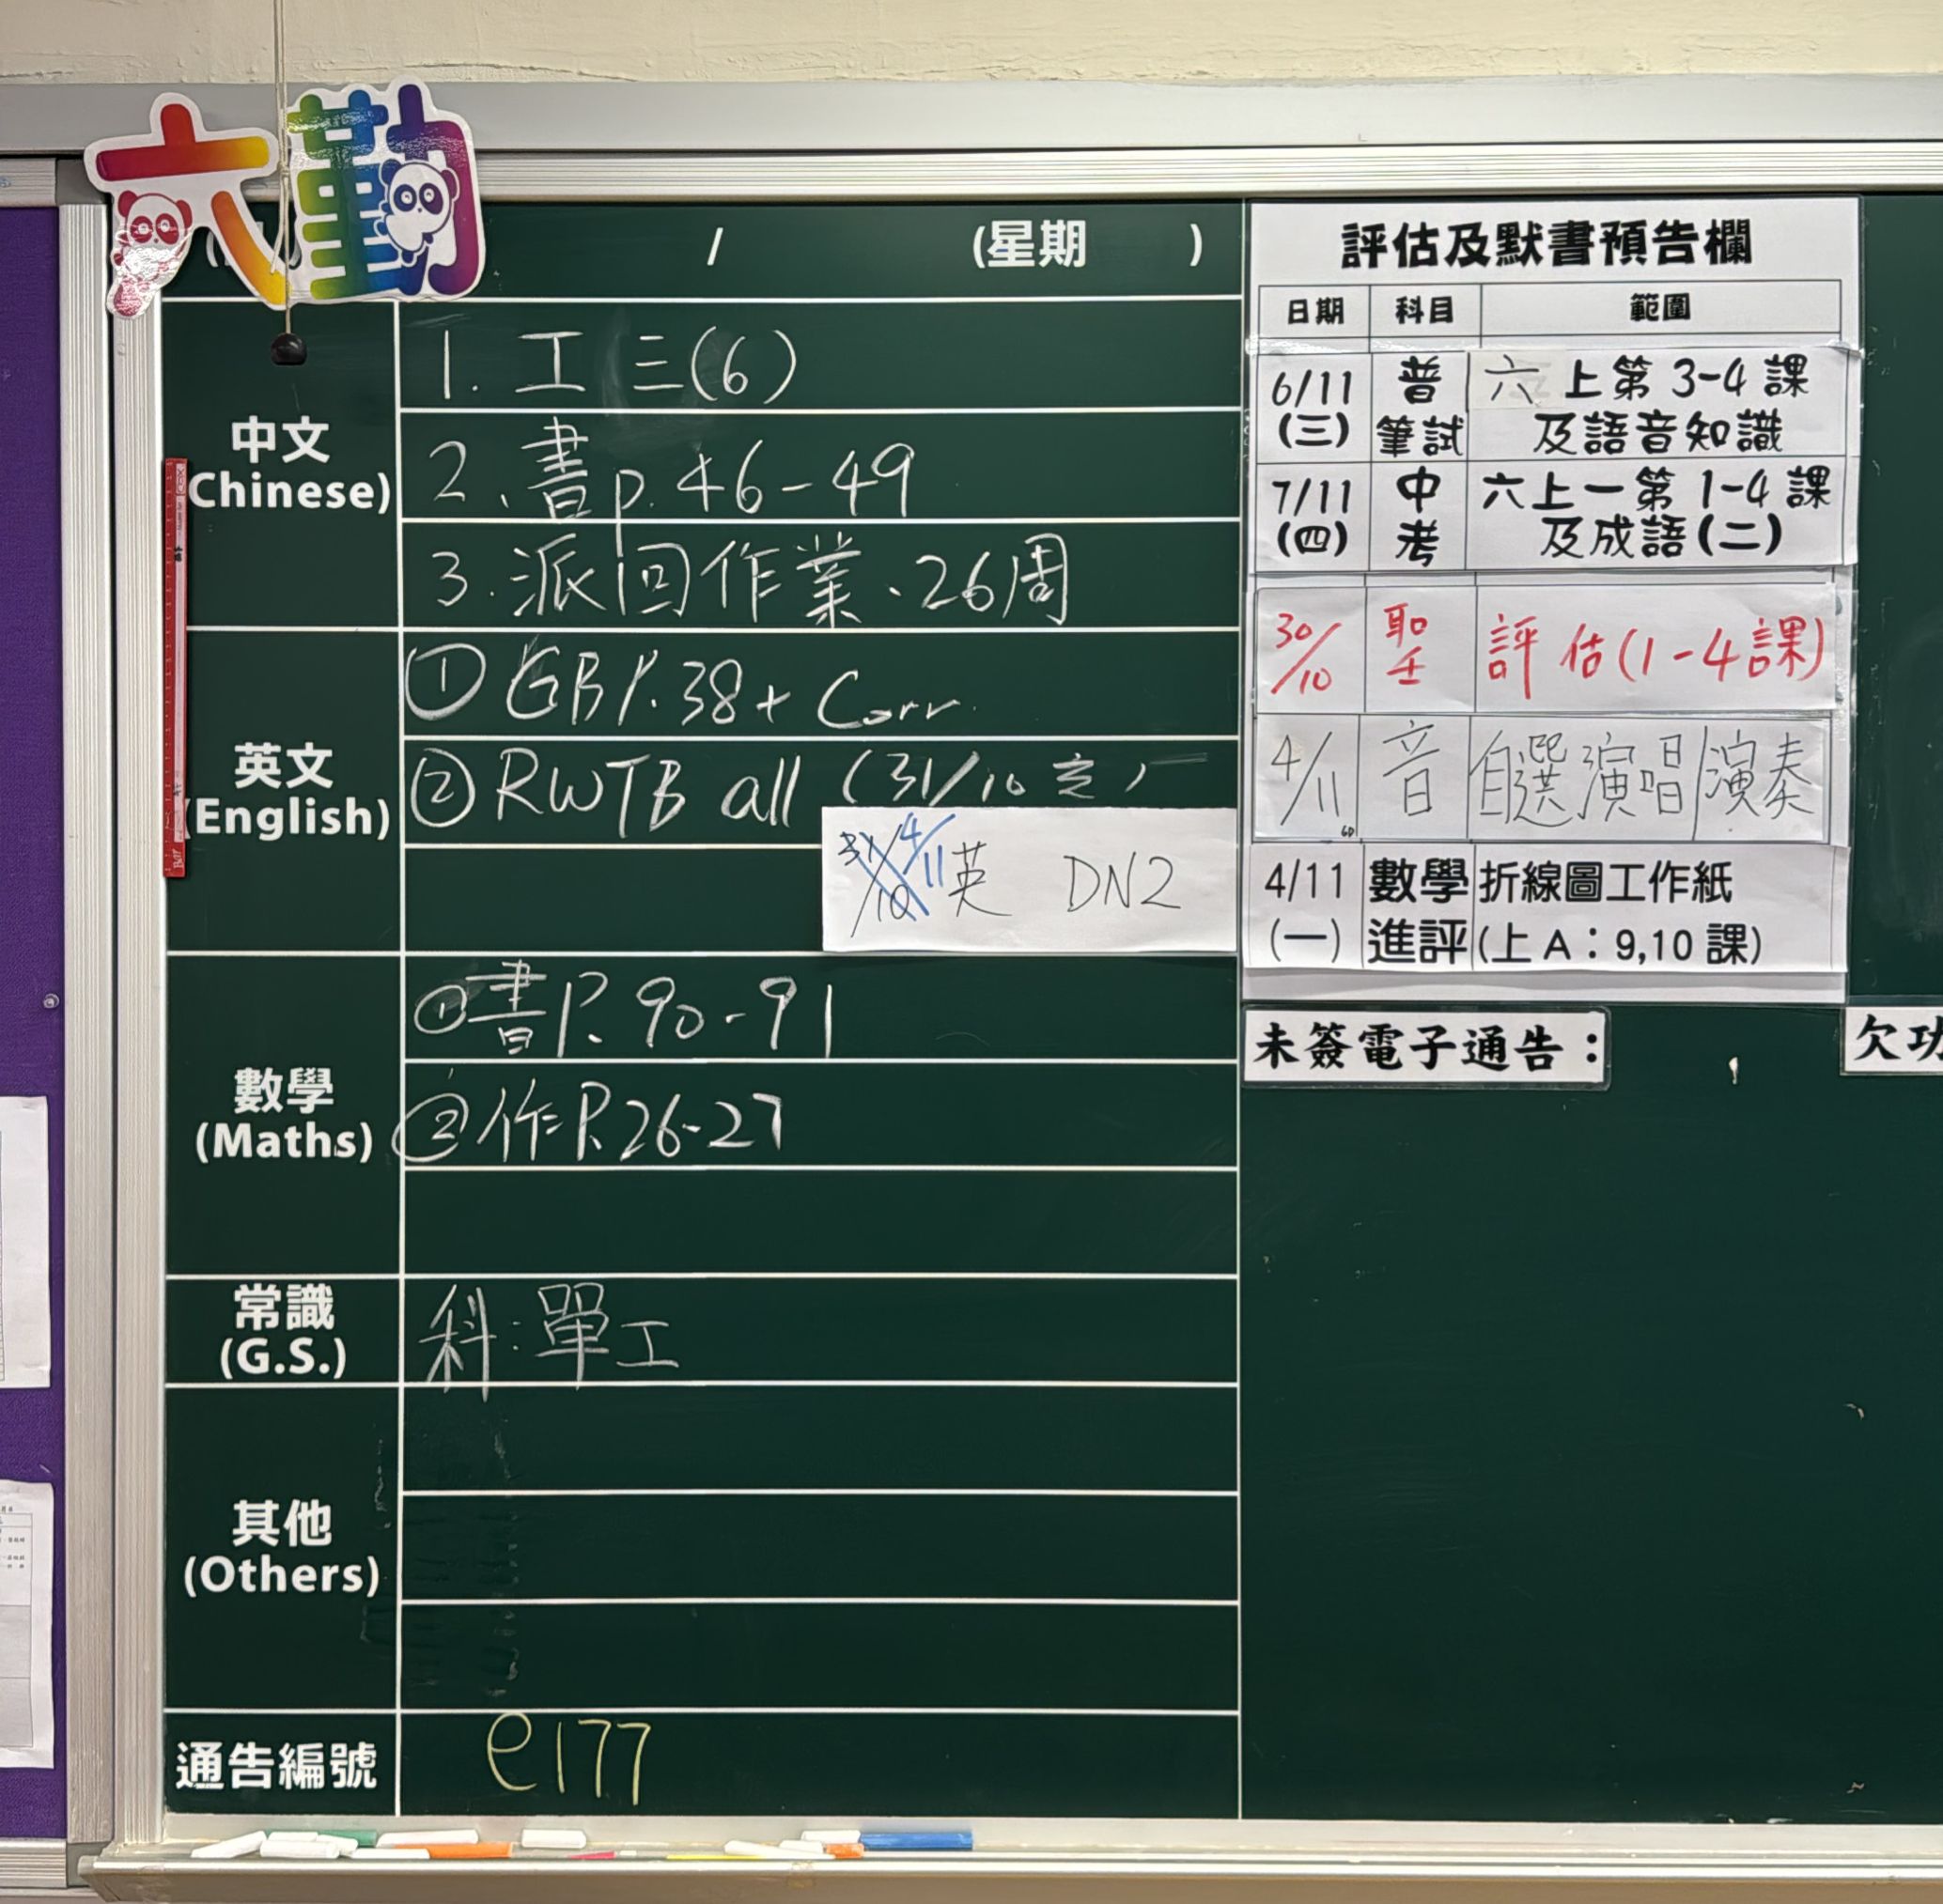 六勤
/ (星期 )
中文
(Chinese)
1. 工 三(6)
2. 書p. 46-49
3. 派回作業、26周
英文
(English)
① GB P. 38 + Corr.
② RWTB all (31/10
31/10 4/11 英 DN2
數學
(Maths)
①書P. 90-91
②作P. 26-27
常識
(G.S.)
科:單工
其他
(Others)
通告編號
e177
評估及默書預告欄
日期 科目 範圍
6/11 普 六上第 3-4 課
(三) 筆試 及語音知識
7/11 中 六上一第 1-4 課
(四) 考 及成語(二)
30/10 聖 評估(1-4課)
4/11 音 自選演唱/演奏
4/11 數學 折線圖工作紙
(一) 進評 (上 A:9,10 課)
未簽電子通告:
欠功